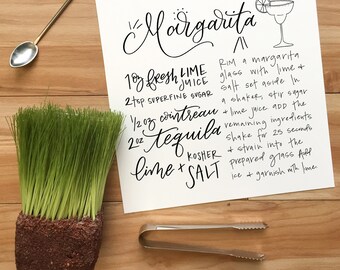 Margarita
1 oz fresh LIME
JUICE
2 tsp SUPERFINE SUGAR
1/2 oz cointreau
2 oz tequila
lime + KOSHER
SALT
Rim a margarita
glass with lime +
salt set aside. In
a shaker, stir sugar
+ lime juice add the
remaining ingredients
shake for 25 seconds
+ strain into the
prepared glass Add
ice + garnish with lime